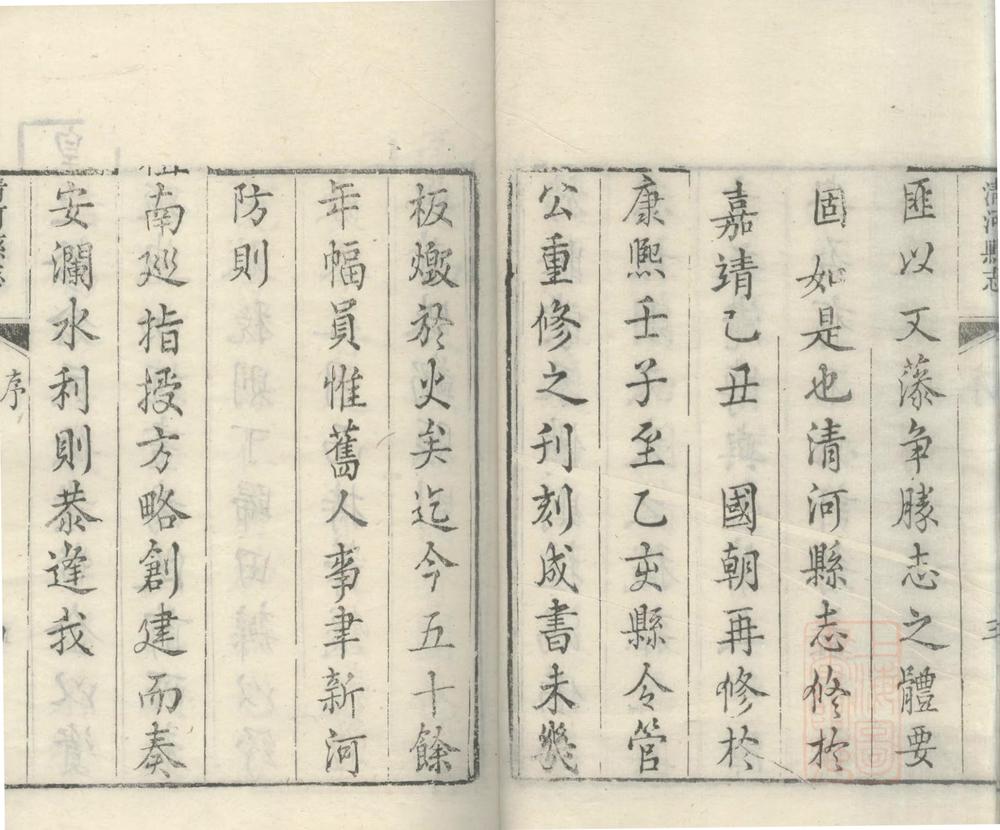 清河縣志
匪以文藻爭勝志之體要
固如是也清河縣志修於
嘉靖己丑 國朝再修於
康熙壬子至乙亥縣令管
公重修之刊刻成書未幾
板燬於火矣迄今五十餘
年幅員惟舊人事聿新河
防則
南廵指授方略創建而奏
安瀾水利則恭逢我
清河縣志 序